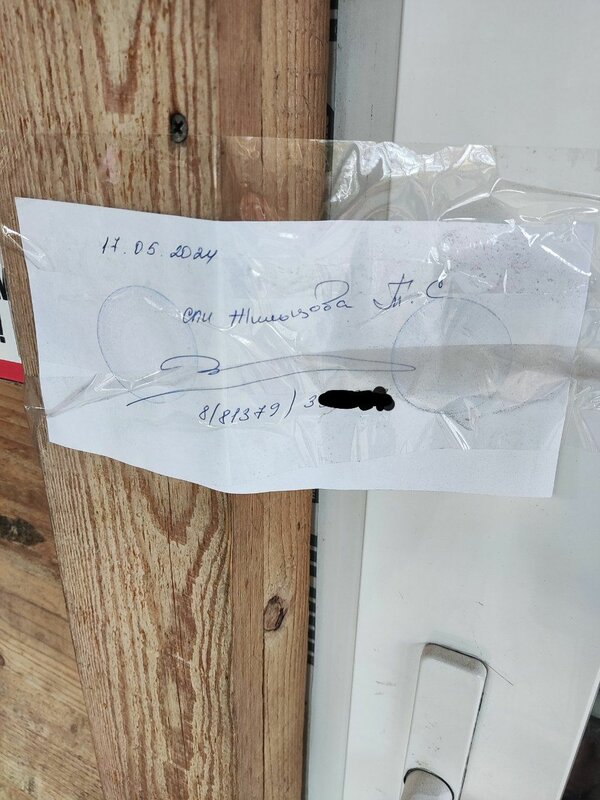 17.05.2024
СПИ Жильцова Т.С
8(81379) 3